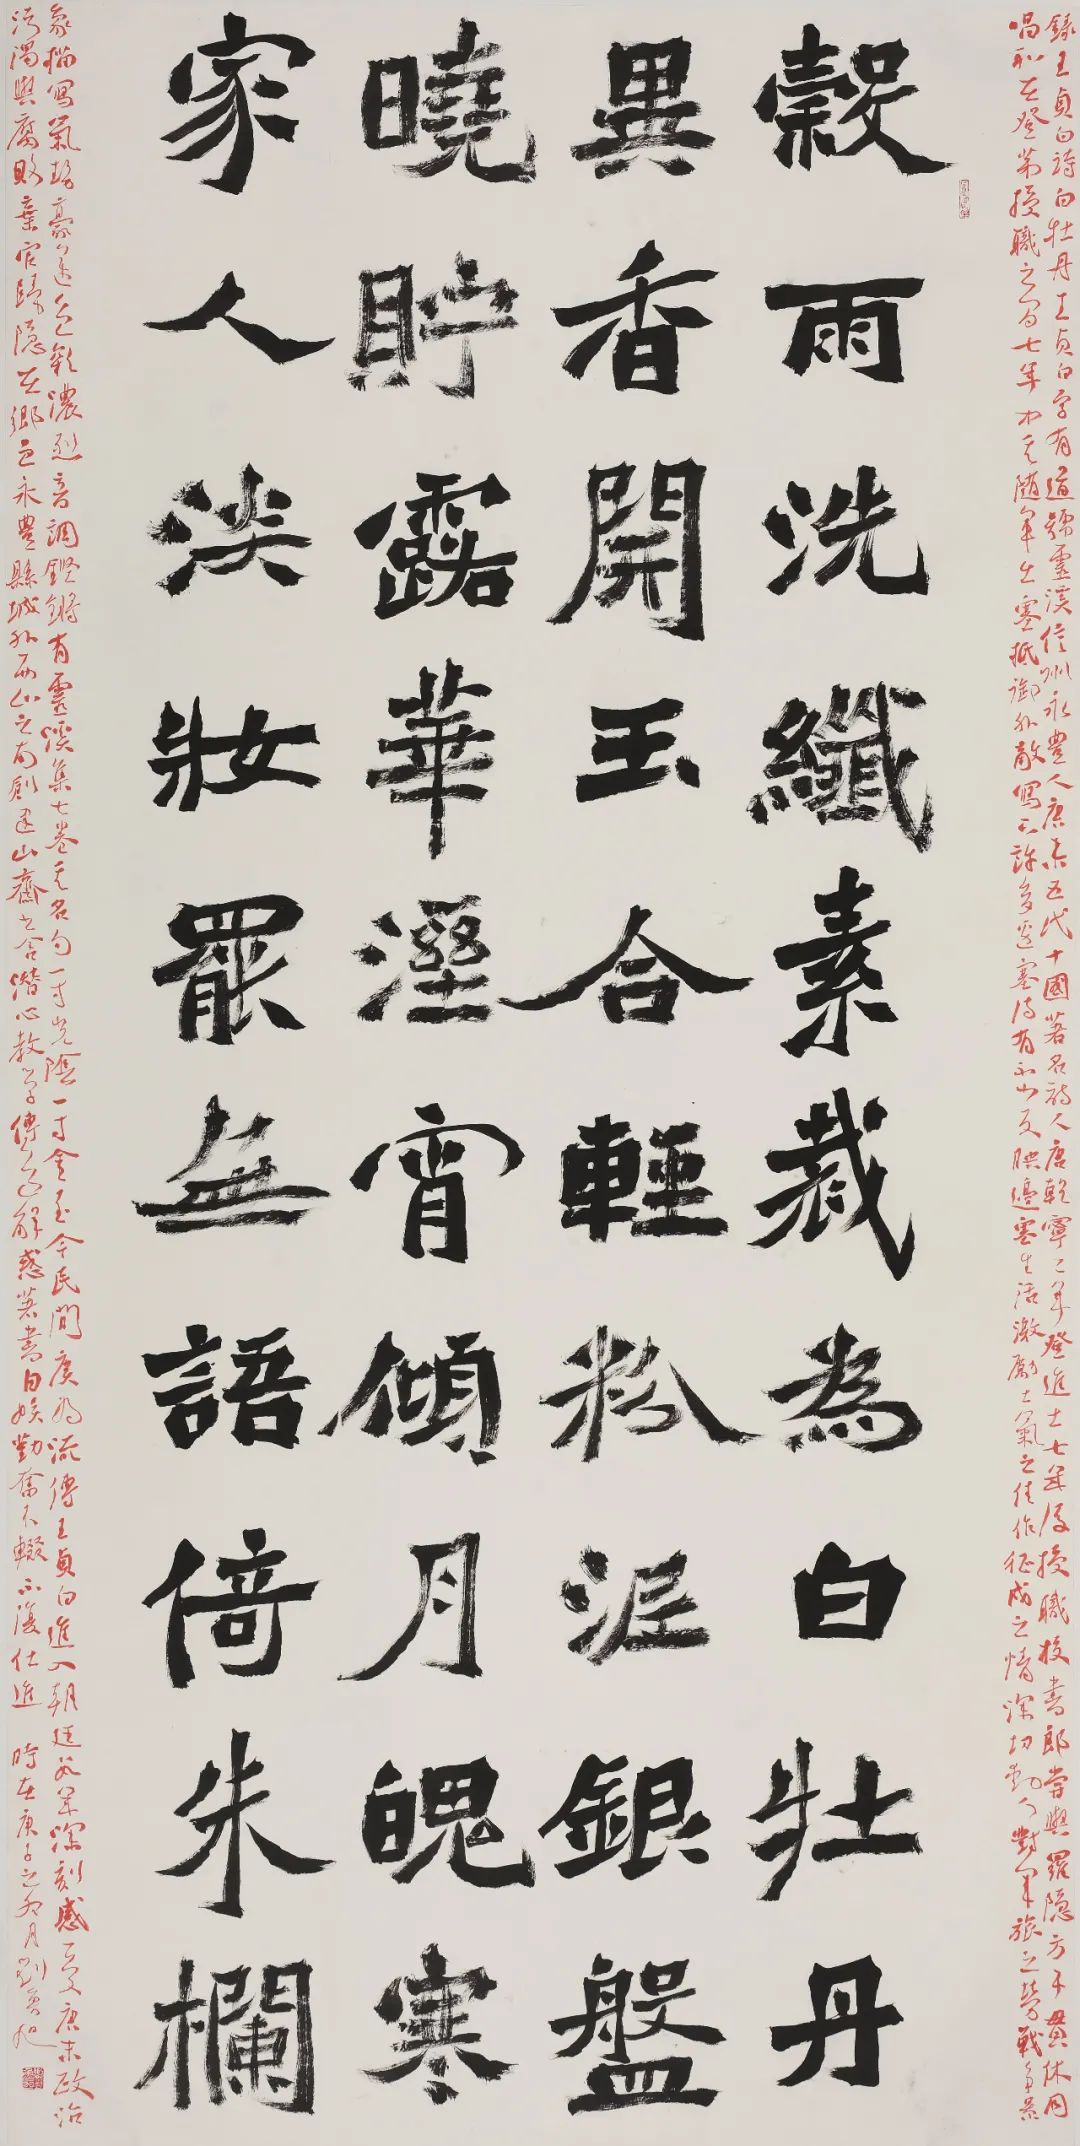 錄王貞白詩白牡丹王貞白字有道號靈溪信州永豐人唐末五代十國著名詩人唐乾寧二年登進士七年後授職校書郎嘗與羅隱方干貫休同
唱和在登第授職之間七年中他隨軍出塞抵禦外敵寫下許多邊塞詩有不少反映邊塞生活激勵士氣之佳作征戍之情深切動人對軍旅之勞戰爭景
穀雨洗纖素裁為白牡丹
異香開玉合輕粉泥銀盤
曉貯露華溼宵傾月魄寒
家人淡妝罷無語倚朱欄
象描寫氣勢豪邁色彩濃烈音調鏗鏘有靈溪集七卷其名句一寸光陰一寸金至今民間廣為流傳王貞白進入朝廷數年深刻感受唐末政治
污濁與腐敗棄官歸隱在鄉之永豐縣城外西山之南創建山齋書舍潛心教學傳道解惑著書自娛勤奮不輟不復仕進 時在庚子之夏月劉